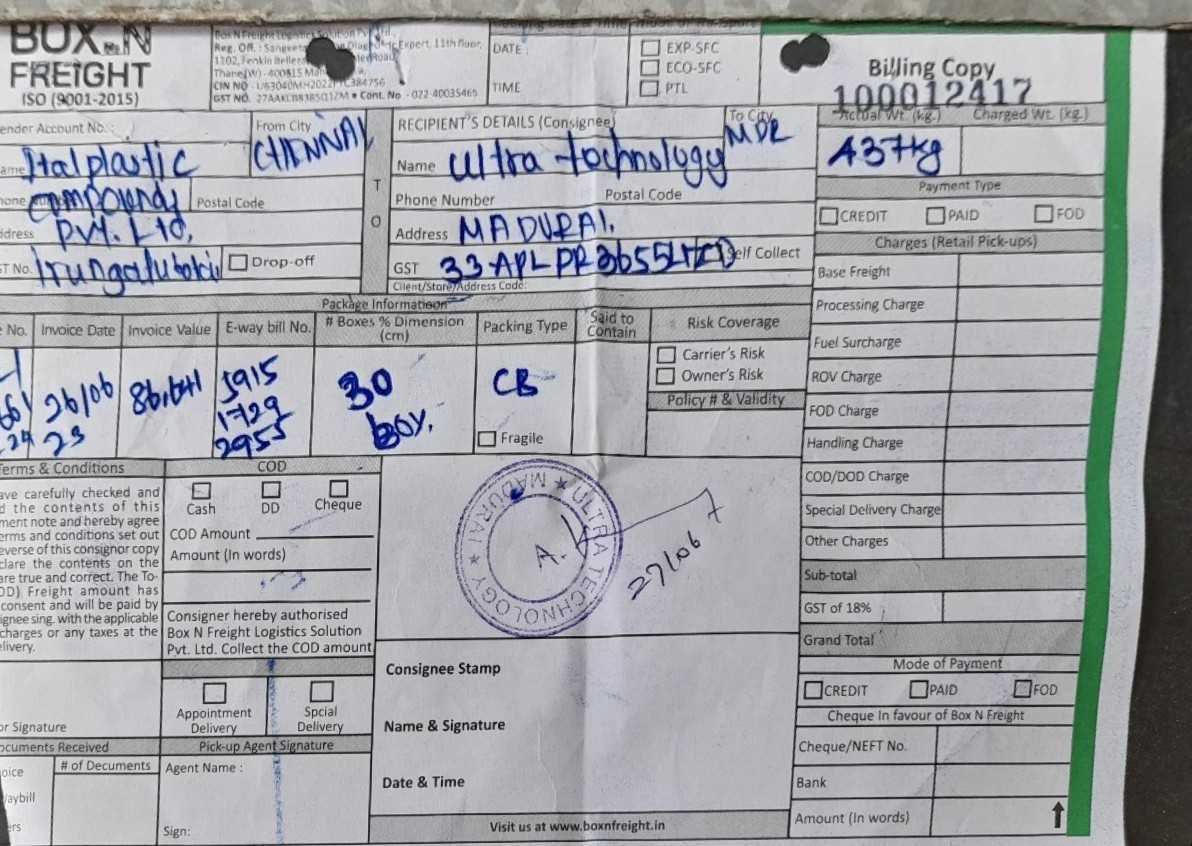 BOX N
FREIGHT
ISO (9001-2015)
Box N Freight Logistics Solution
Reg. Off. : Expert, 11th floor,
1102,
Thane (W) - 400615
CIN NO -
GST NO. • Cont. No - 022-40035465
DATE :
TIME
EXP-SFC
ECO-SFC
PTL
Billing Copy
100012417
ender Account No. :
From City
CHENNAI
RECIPIENT'S DETAILS (Consignee)
To City
MDR
Actual Wt. (kg.) Charged Wt. (kg.)
437kg
ame Italplastic
Compounds
Postal Code
dress Pvt. Ltd.
T No.
Drop-off
TO
Name Ultra technology
Phone Number Postal Code
Address MADURAI.
GST
Self Collect
Client/Store/Address Code:
Payment Type
CREDIT PAID FOD
Charges (Retail Pick-ups)
Base Freight
Processing Charge
Fuel Surcharge
ROV Charge
FOD Charge
Handling Charge
COD/DOD Charge
Special Delivery Charge
Other Charges
Sub-total
GST of 18%
Grand Total
Package Information
No. Invoice Date Invoice Value E-way bill No. # Boxes % Dimension (cm) Packing Type Said to Contain Risk Coverage
26/06
23
5915
1729
2955
30
box.
CB
Fragile
Carrier's Risk
Owner's Risk
Policy # & Validity
Terms & Conditions
ave carefully checked and
d the contents of this
ment note and hereby agree
erms and conditions set out
everse of this consignor copy
clare the contents on the
are true and correct. The To-
OD) Freight amount has
consent and will be paid by
ignee sing. with the applicable
charges or any taxes at the
elivery.
COD
Cash DD Cheque
COD Amount
Amount (In words)
Consigner hereby authorised
Box N Freight Logistics Solution
Pvt. Ltd. Collect the COD amount
Appointment Delivery
Spcial Delivery
ULTRA TECHNOLOGY ★ MADURAI ★
27/06
Consignee Stamp
Name & Signature
Date & Time
or Signature
ocuments Received
oice
/aybill
ers
# of Decuments
Pick-up Agent Signature
Agent Name :
Sign:
Mode of Payment
CREDIT PAID FOD
Cheque In favour of Box N Freight
Cheque/NEFT No.
Bank
Amount (In words)
Visit us at www.boxnfreight.in